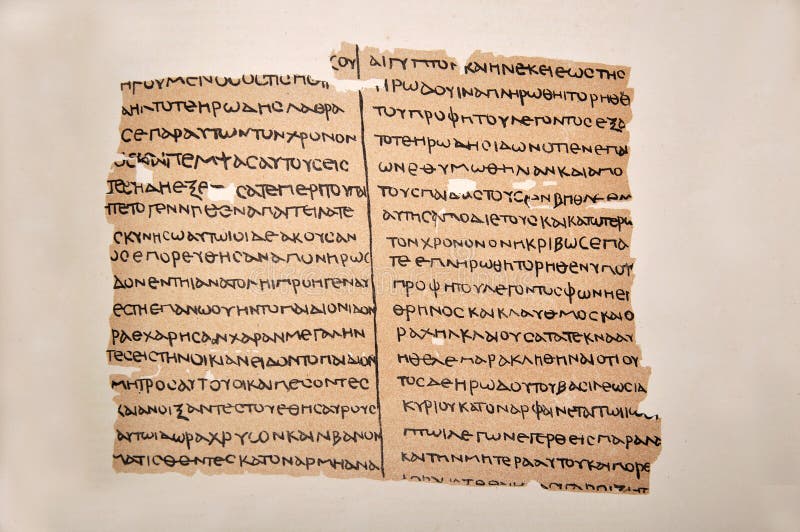 ΗΓΟΥΜΕΝΟΣΟΣΤΙΣΠΟΙ
ΔΗΛΤΟΤΕΗΡΩΔΗϹΛΑΘΡΑ
ϹΕΠΑΡΑΥΤΩΝΤΟΝΧΡΟΝΟΝ
ΟϹΚΑΙΠΕΜΨΑϹΑΥΤΟΥϹΕΙϹ
ΕΞΕ ϹΑΤΕΠΕΡΙΤΟΥΠΑΙ
ΠΕΤΟΓΕΝΝΗΘΕΝΑΠΑΓΓΕΙΛΑΤΕ
ϹΚΥΝΗϹΩΑΥΤΩΙΟΙΔΕΑΚΟΥϹΑΝ
ΟϹΕΠΟΡΕΥΘΗϹΑΝ
ΔΟΝΕΝΤΗΙΑΝΑΤΟΛΗΙΠΡΟΗΓΕΝΑΥ
ΕϹΤΗΕΠΑΝΩΟΥΗΝΤΟΠΑΙΔΙΟΝΙΔΟΝ
ΡΑΕΧΑΡΗϹΑΝΧΑΡΑΝΜΕΓΑΛΗΝ
ΤΕϹΕΙϹΤΗΝΟΙΚΙΑΝΕΙΔΟΝΤΟΠΑΙΔΙΟΝ
ΜΗΤΡΟϹΑΥΤΟΥΟΙΚΑΙΠΕϹΟΝΤΕϹ
ΚΑΙΑΝΟΙΞΑΝΤΕϹΤΟΥϹΘΗϹΑΥΡΟΥϹ
ΑΥΤΩΙΔΩΡΑΧΡΥϹΟΝΚΑΙΛΙΒΑΝΟΝ
ΜΑΤΙϹΘΕΝΤΕϹΚΑΤΟΝΑΡΜΗΑΝΑ
ϹΟΥ ΑΙΓΥΠΤΟΝ ΚΑΙΗΝΕΚΕΙΕΩϹΤΗϹ
ΗΡΩΔΟΥΙΝΑΠΛΗΡΩΘΗΙΤΟΡΗΘΕ
ΤΟΥΠΡΟΦΗΤΟΥΛΕΓΟΝΤΟϹΕΞΑ
ΤΟΤΕΗΡΩΔΗϹΙΔΩΝΟΤΙΕΝΕΠΑΙ
ΩΝΕΘΥΜΩΘΗΛΙΑΝΚΑΙΑΠΟ
ΤΟΥϹΠΑΙΔΑϹΤΟΥϹΕΝΒΗΘΛΕΕΜ
ΑΥΤΗϹΑΠΟΔΙΕΤΟΥϹΚΑΙΚΑΤΩΤΕΡΩ
ΤΟΝΧΡΟΝΟΝΟΝΗΚΡΙΒΩϹΕΠΑ
ΤΕΕΠΛΗΡΩΘΗΤΟΡΗΘΕΝΥΠΟΙ
ΠΡΟΦΗΤΟΥΛΕΓΟΝΤΟϹΦΩΝΗΕΙ
ΘΡΗΝΟϹΚΑΙΚΛΑΥΘΜΟϹΚΑΙΟ
ΡΑΧΗΛΚΛΑΙΟΥϹΑΤΑΤΕΚΝΑΑΥ
ΗΘΕΛΕΠΑΡΑΚΛΗΘΗΝΑΙΟΤΙΟΥ
ΤΟϹΔΕΗΡΩΔΟΥΤΟΥΒΑϹΙΛΕΩϹΙΑ
ΚΥΡΙΟΥΚΑΤΟΝΑΡΦΑΙΝΕΤΑΙ
ΠΤΩΙΛΕΓΩΝΕΓΕΡΘΕΙϹΠΑΡΑΛΑ
ΚΑΙΤΗΝΜΗΤΕΡΑΑΥΤΟΥΚΑΙΠΟΡΕ